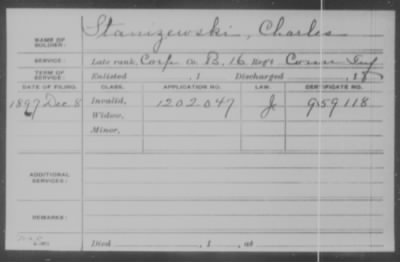 NAME OF SOLDIER: Stanizewski, Charles
SERVICE: Late rank, Corp Co. B, 16 Reg't Conn Inf
TERM OF SERVICE: Enlisted , 1 Discharged , 18
DATE OF FILING. CLASS. APPLICATION NO. LAW. CERTIFICATE NO.
1897 Dec 8 Invalid, 1202.047 J 959118
Widow,
Minor,
ADDITIONAL SERVICES:
REMARKS:
Died , 1 , at